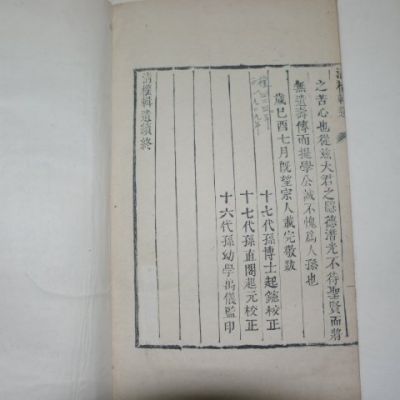 清權輯遺
之苦心也從玆大君之隱德潛光不待聖賢而將
無遺壽傳而提學公誠不愧爲人孫也
歲己酉七月旣望宗人載完敬跋
十七代孫博士起 校正
十七代孫直閣起元校正
十六代孫幼學 儀監印
清權輯遺續終